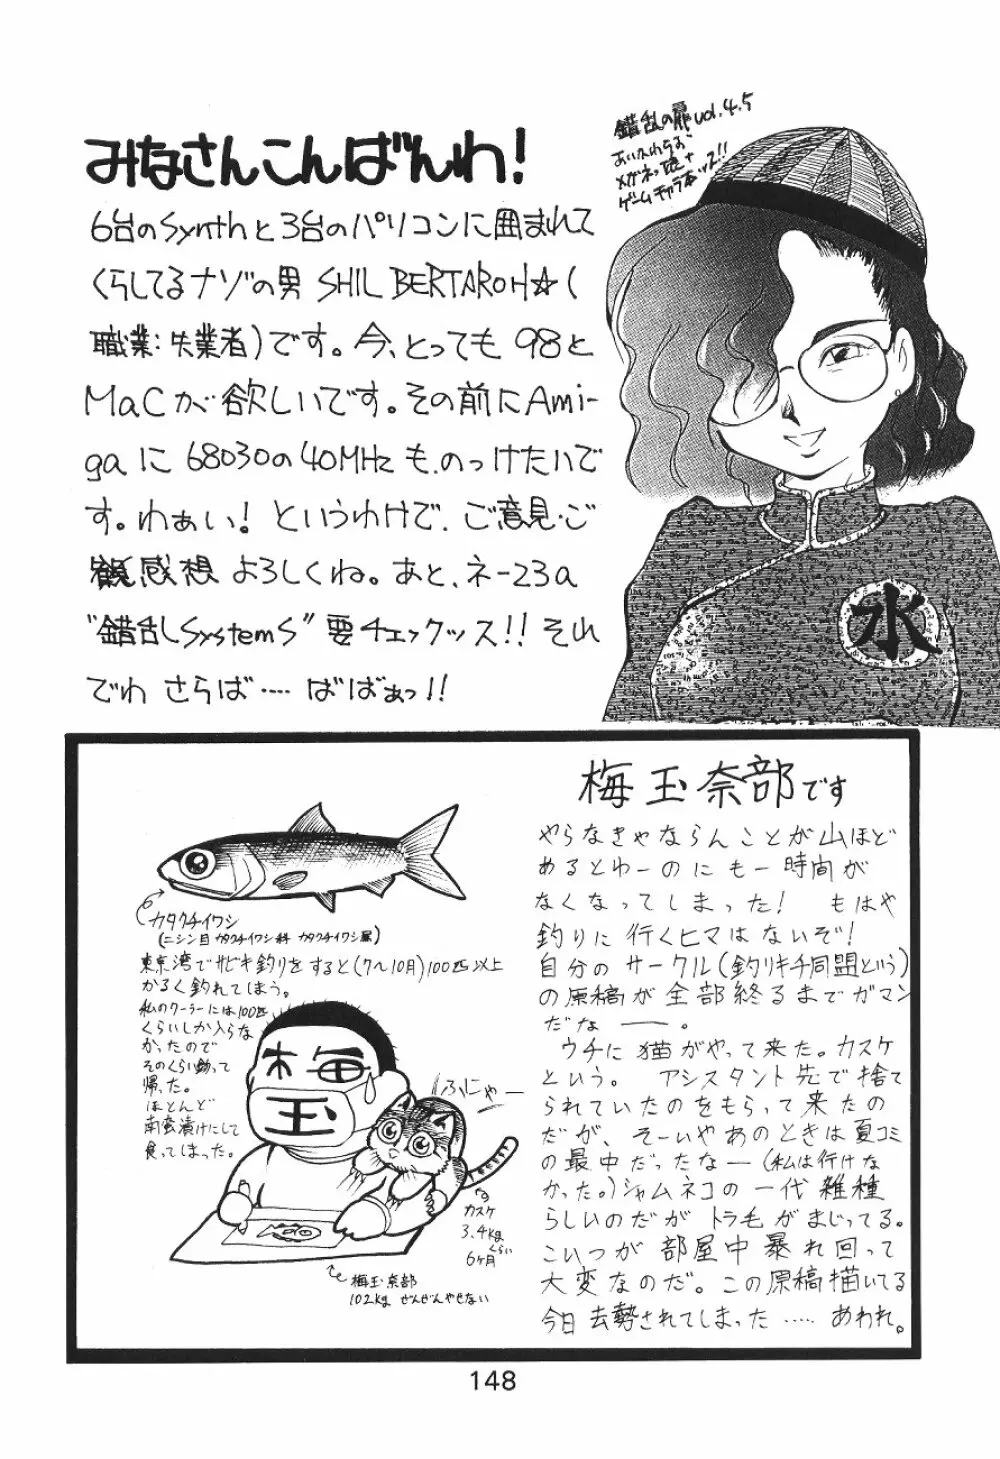 みなさんこんばんわ!
6台のSynthと3台のパソコンに囲まれて
くらしてるナゾの男 SHIL BERTAROH☆(
職業:失業者)です。今、とっても98と
MaCが欲しいです。その前にAmi-
gaに68030の40MHzも、のっけたいで
す。わぁい! というわけで、ご意見・ご
感想 よろしくね。あと、ネー23a
"錯乱SystemS"要チェックッス!! それ
でわ さらば‥‥ ばばぁっ!!
錯乱の扉vol.4.5
あいかわらず
メガネっ娘+
ゲームキャラ本ッス!!
水
梅玉奈部です
やらなきゃならんことが山ほど
あるとゆーのにも一時間が
なくなってしまった! もはや
釣りに行くヒマはないぞ!
自分のサークル(釣りキチ同盟という)
の原稿が全部終るまでガマン
だなー。
ウチに猫がやって来た。カスケ
という。 アシスタント先で捨て
られていたのをもらって来たの
だが、そーいやあのときは夏コミ
の最中だったなー(私は行けな
かった。)シャムネコの一代雑種
らしいのだがトラ毛がまじってる。
こいつが部屋中暴れ回って
大変なのだ。この原稿描いてる
今日去勢されてしまった‥‥‥あわれ。
カタクチイワシ
(ニシン目カタクチイワシ科カタクチイワシ属)
東京湾でサビキ釣りをすると(7〜10月)100匹以上
かるく釣れてしまう。
私のクーラーには100匹
くらいしか入らな
かったので
そのくらい釣って
帰った。
ほとんど
南蛮漬けにして
食ってしまった。
梅
玉
ふにゃー
カスケ
3.4kgくらい
6ヶ月
梅玉奈部
102kg ぜんぜんやせない
148